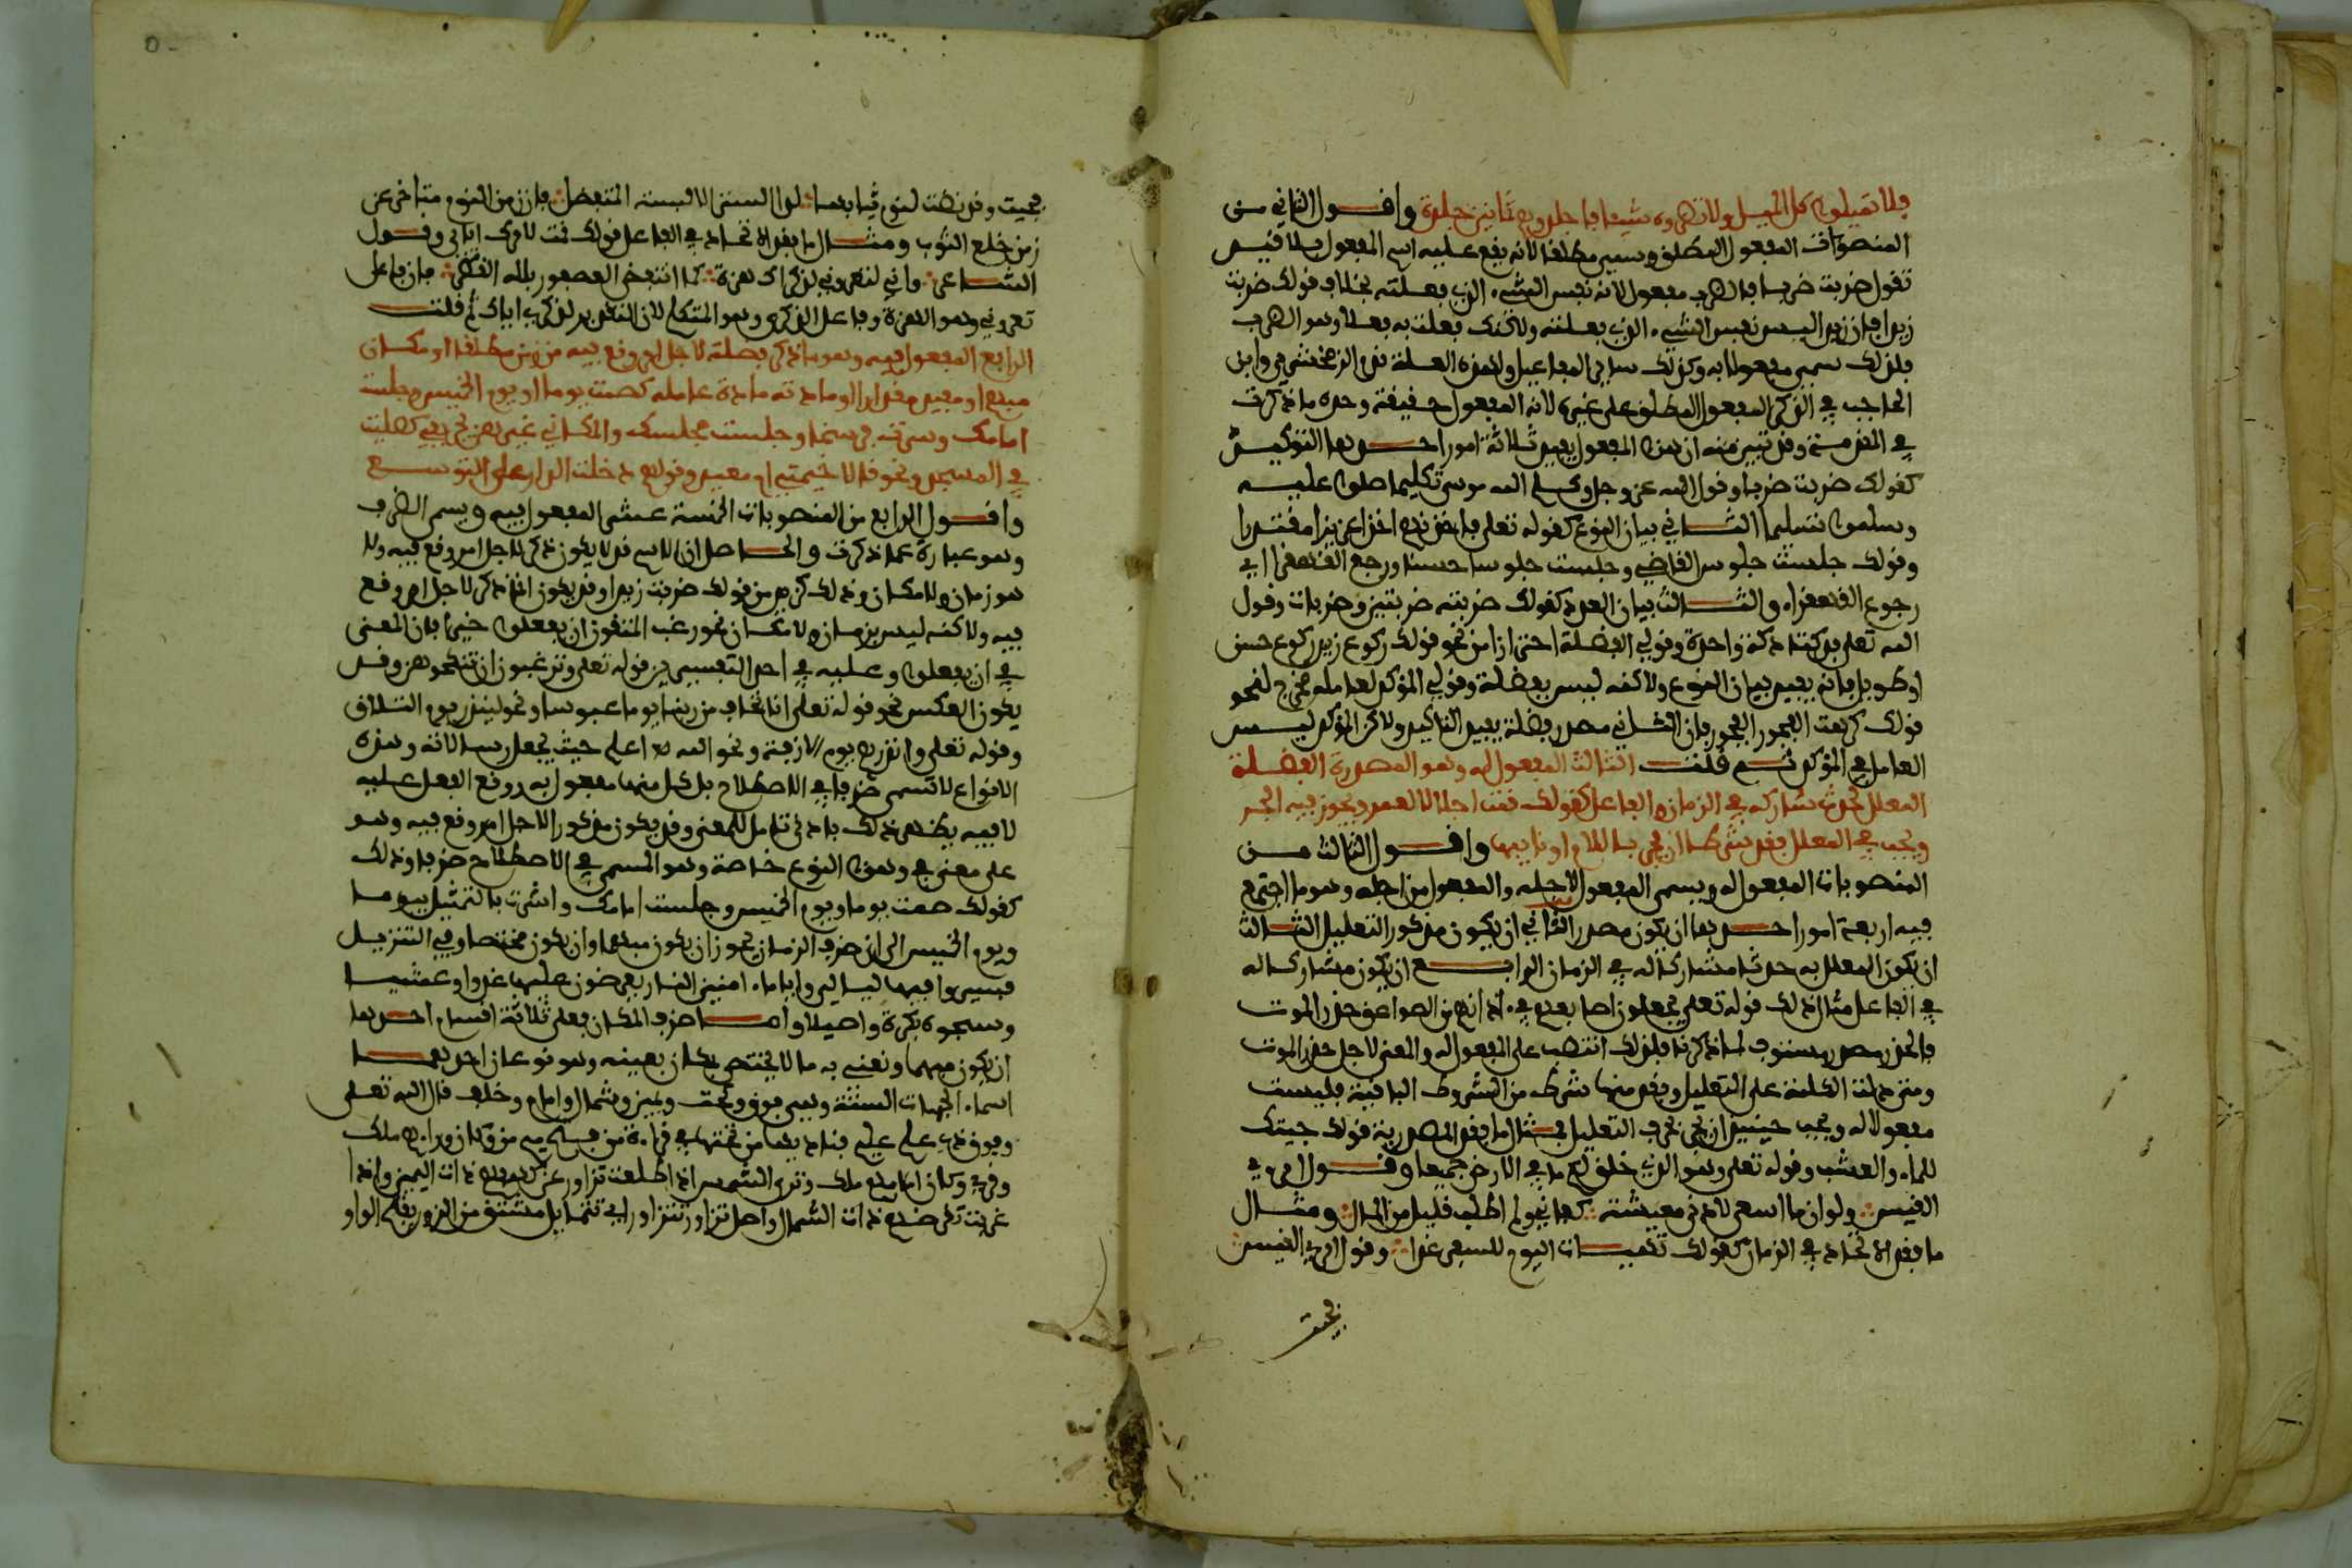 فلا تميلوا كل الميل ولا تضروه شيئا فاجلدوهم ثمانين جلدة واقول الثاني من
المنصوبات المفعول المطلق وسمي مطلقا لانه يقع عليه اسم المفعول بلا قيد
تقول ضربت ضربا فالضرب مفعول لانه نفس الشيء الذي فعلته بخلاف قولك ضربت
زيدا فان زيدا ليس نفس الشيء الذي فعلته ولاكنك فعلت به فعلا وهو الضرب
فلذلك سمي مفعولا به وكذلك ساير المفاعيل ولهذه العلة قدم الزمخشري وابن
الحاجب في الذكر المفعول المطلق على غيره لانه المفعول حقيقة وحده ما ذكرت
في المقدمة وقد تبين منه ان هذا المفعول يفيد ثلاثة امور احدها التوكيد
كقولك ضربت ضربا وقول الله عز وجل وكلم الله موسى تكليما صلوا عليه
وسلموا تسليما الثاني بيان النوع كقوله تعلى فاخذناهم اخذ عزيز مقتدر
وقولك جلست جلوس القاضي وجلست جلوسا حسنا ورجع القهقرا اي
رجوع القهقرا والثالث بيان العدد كقولك ضربته ضربتين وضربات وقول
الله تعلى فدكتا دكة واحدة وقولي الفضلة احترازا من نحو قولك ركوع زيد ركوع حسن
او طويل فانه يفيد بيان النوع ولاكنه ليس بفضلة وقولي المؤكد لعامله مخرج لنحو
قولك كرهت الفجور الفجور فان الثاني مصدر فضلة يفيد التاكيد ولاكن المؤكد ليس
العامل في المؤكد ثم قلت الثالث المفعول له وهو المصدر الفضلة
المعلل لحدث شاركه في الزمان والفاعل كقولك قمت اجلالا لعمرو ويجوز فيه الجر
ويجب في المعلل فقد شرطا ان يجر باللام او نايبها واقول الثالث من
المنصوبات المفعول له ويسمى المفعول لاجله والمفعول من اجله وهو ما اجتمع
فيه اربعة امور احدها ان يكون مصدرا الثاني ان يكون مذكورا للتعليل الثالث
ان يكون المعلل به حدثا مشاركا له في الزمان الرابع ان يكون مشاركا له
في الفاعل مثال ذلك قوله تعلى يجعلون اصابعهم في ءاذانهم من الصواعق حذر الموت
فالحذر مصدر مستوف لما ذكرنا فلذلك انتصب على المفعول له والمعنى لاجل حذر الموت
ومتى دلت الكلمة على التعليل وفقد منها شرط من الشروط الباقية فليست
مفعولا له ويجب حينيذ ان تجر بحرف التعليل فمثال ما فقد المصدرية قولك جيتك
للماء والعشب وقوله تعلى وهو الذي خلق لكم ما في الارض جميعا وقول امرء
القيس ولو ان ما اسعى لادنى معيشة كفاني ولم اطلب قليل من المال ومثال
ما فقد الاتحاد في الزمان كقولك تهيات اليوم للسفر غدا وقول امرء القيس
فجيت
فجيت وقد نضت لنوم ثيابها لدا الستر الا لبسة المتفضل فان زمن النوم متاخر عن
زمن خلع الثوب ومثال ما فقد الاتحاد في الفاعل قولك قمت لامرك اياي وقول
الشاعر واني لتعروني لذكراك هزة كما انتفض العصفور بلله القطر فان فاعل
تعروني هو الهزة وفاعل الذكرى هو المتكلم لان التقدير لذكري اياك ثم قلت
الرابع المفعول فيه وهو ما ذكر فضلة لاجل امر وقع فيه من زمن مطلقا او مكان
مبهم او مفيد مقدارا او مادته مادة عامله كصمت يوما او يوم الخميس وجلست
امامك وسرت فرسخا وجلست مجلسك والمكاني غيرهن يجر بفي كصليت
في المسجد ونحو قالا خيمتي ام معبد وقولهم دخلت الدار على التوسع
واقول الرابع من المنصوبات الخمسة عشر المفعول فيه ويسمى الظرف
وهو عبارة عما ذكرت والحاصل ان الاسم قد لا يكون ذكر لاجل امر وقع فيه ولا
هو زمان ولا مكان وذلك كزيد من قولك ضربت زيدا وقد يكون انما ذكر لاجل امر وقع
فيه ولاكنه ليس بزمان ولا مكان نحو رغب المتقون ان يفعلوا خيرا فان المعنى
في ان يفعلوا وعليه في احد التفسيرين قوله تعلى وترغبون ان تنكحوهن وقد
يكون العكس نحو قوله تعلى انا نخاف من ربنا يوما عبوسا ونحو لينذر يوم التلاق
وقوله تعلى وانذرهم يوم الازفة ونحو الله اعلم حيث يجعل رسالاته وهذه
الانواع لا تسمى ظرفا في الاصطلاح بل كل منها مفعول به ووقع الفعل عليه
لا فيه يظهر ذلك بادنى تامل للمعنى وقد يكون مذكورا لاجل امر وقع فيه وهو
على معنى في وهذا النوع خاصة وهو المسمى في الاصطلاح ظرفا وذلك
كقولك صمت يوما ويوم الخميس وجلست امامك واشرت بالتمثيل بيوما
ويوم الخميس الى ان ظرف الزمان يجوز ان يكون مبهما وان يكون مختصا وفي التنزيل
فسيروا فيها ليالي واياما ءامنين النار يعرضون عليها غدوا وعشيا
وسبحوه بكرة واصيلا واما ظرف المكان فعلى ثلاثة اقسام احدها
ان يكون مبهما ونعني به ما لا يختص بمكان بعينه وهو نوعان احدهما
اسماء الجهات الستة وهي فوق وتحت ويمين وشمال وامام وخلف قال الله تعلى
وفوق كل ذي علم عليم فناديها من تحتها في قراءة من فتح ميم من وكان وراءهم ملك
وقرئ وكان امامهم ملك وترى الشمس اذا طلعت تزاور عن كهفهم ذات اليمين واذا
غربت تقرضهم ذات الشمال واصل تزاور تتزاور اي تتمايل مشتق من الزور بفتح الواو